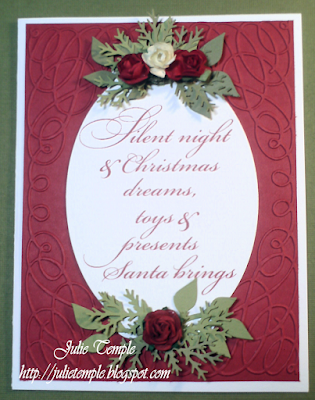 Silent night
& Christmas
dreams,
toys &
presents
Santa brings
Julie Temple
http://julietemple.blogspot.com